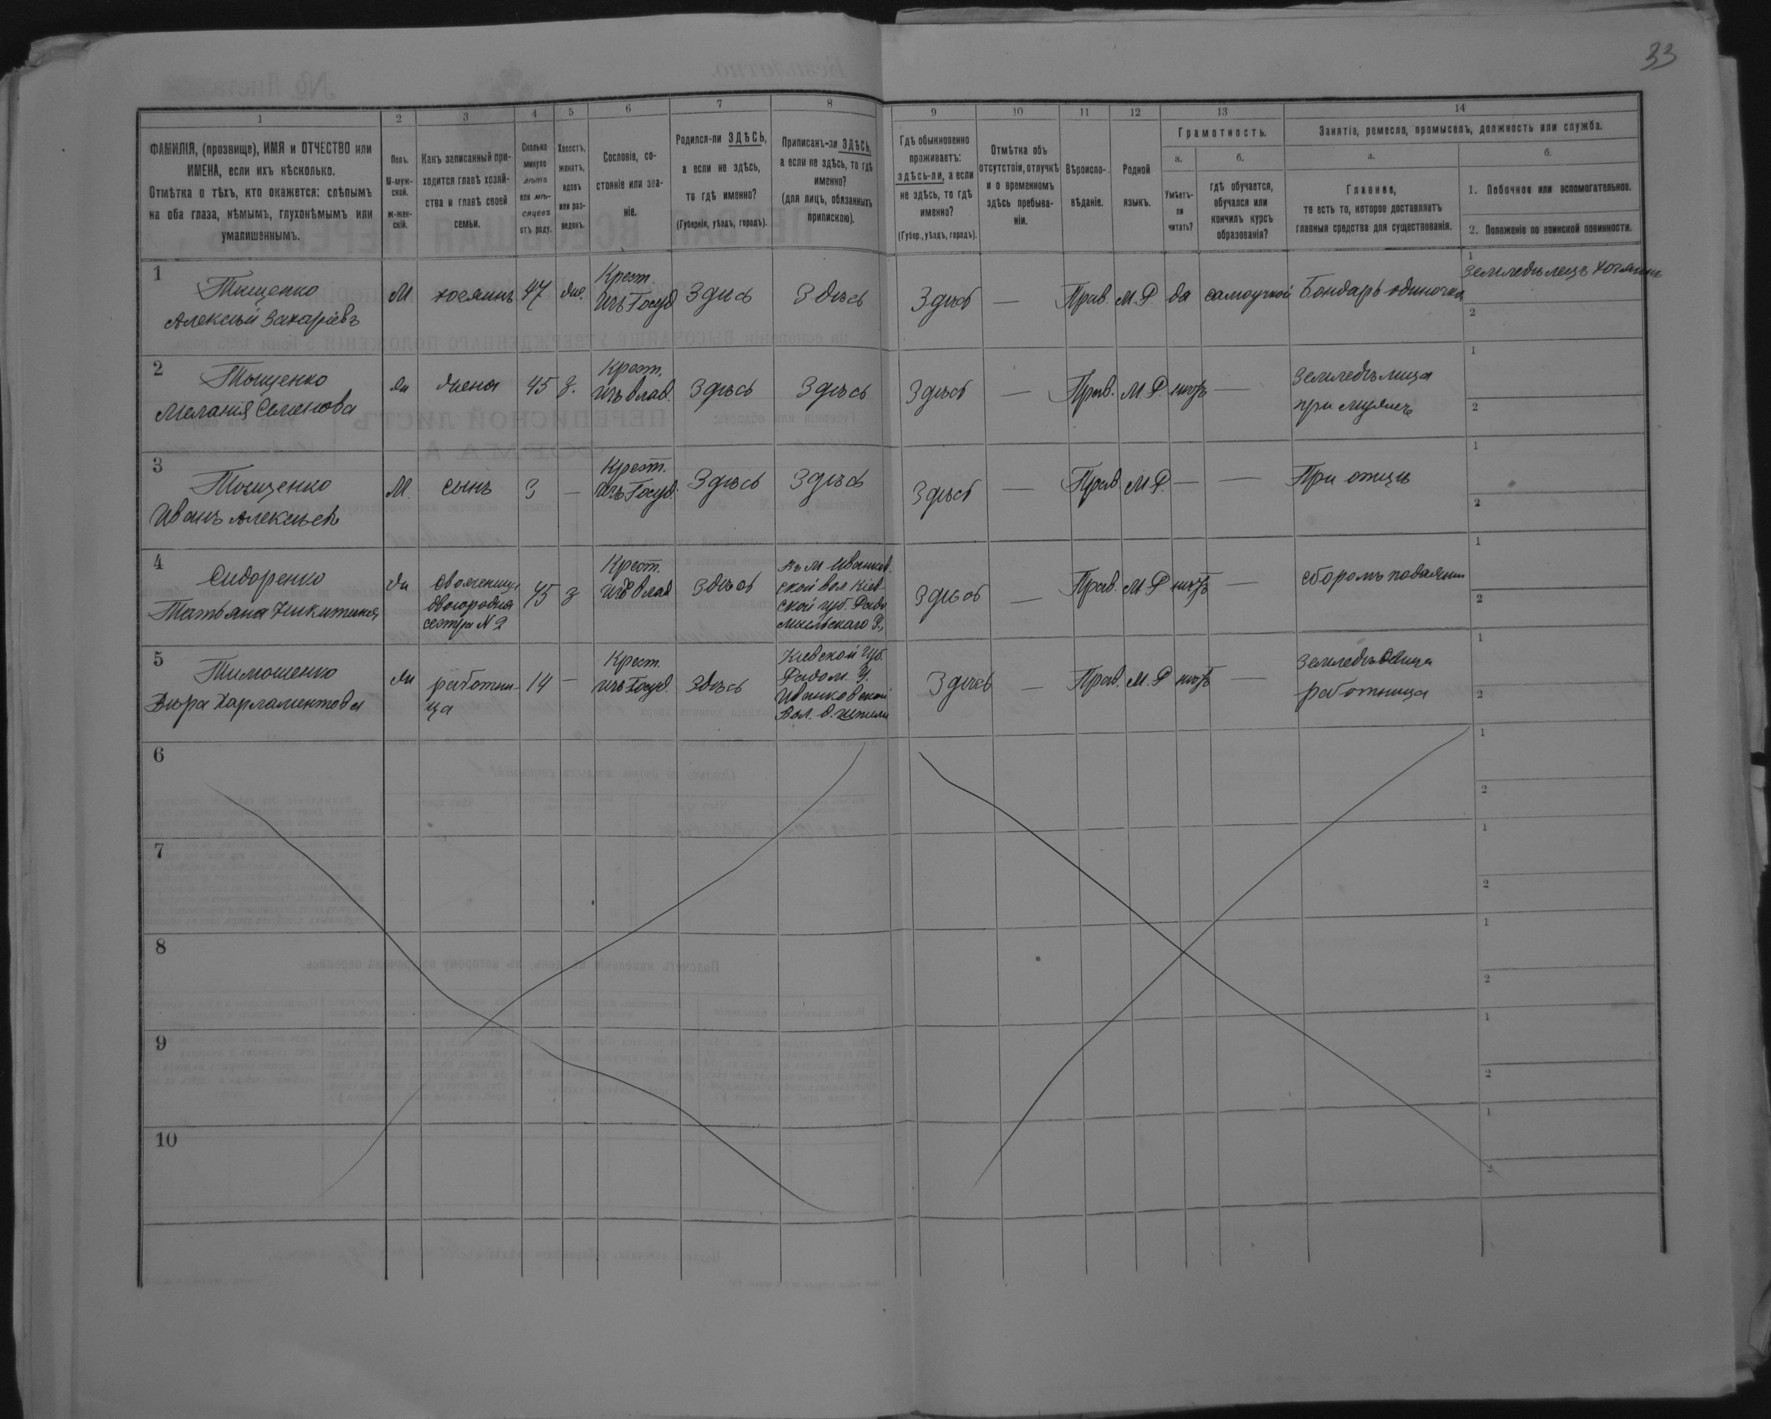 33
1
2
3
4
5
6
7
8
9
10
11
12
13
14
ФАМИЛІЯ, (прозвище), ИМЯ и ОТЧЕСТВО или
ИМЕНА, если ихъ нѣсколько.
Отмѣтка о тѣхъ, кто окажется: слѣпымъ
на оба глаза, нѣмымъ, глухонѣмымъ или
умалишеннымъ.
Полъ.
М-муж-
ской.
ж-жен-
скій.
Какъ записанный при-
ходится главѣ хозяй-
ства и главѣ своей
семьи.
Сколько
минуло
лѣтъ
или мѣ-
сяцевъ
отъ роду.
Холостъ,
женатъ,
вдовъ
или раз-
веденъ.
Сословіе, со-
стояніе или зва-
ніе.
Родился-ли ЗДѢСЬ,
а если не здѣсь,
то гдѣ именно?
(Губернія, уѣздъ, городъ).
Приписанъ-ли ЗДѢСЬ,
а если не здѣсь, то гдѣ
именно?
(для лицъ, обязанныхъ
припискою).
Гдѣ обыкновенно
проживаетъ:
здѣсь-ли, а если
не здѣсь, то гдѣ
именно?
(Губер., уѣздъ, городъ).
Отмѣтка объ
отсутствіи, отлучкѣ
и о временномъ
здѣсь пребыва-
ніи.
Вѣроиспо-
вѣданіе.
Родной
языкъ.
Грамотность.
а.
Умѣетъ-
ли
читать?
б.
гдѣ обучается,
обучался или
кончилъ курсъ
образованія?
Занятіе, ремесло, промыселъ, должность или служба.
а.
Главное,
то есть то, которое доставляетъ
главныя средства для существованія.
б.
1. Побочное или вспомогательное.
2. Положеніе по воинской повинности.
1
Тищенко
Алексѣй Захаріевъ
М
хозяинъ
47
жен.
Крест.
изъ Госуд
Здѣсь
Здѣсь
Здѣсь
—
Прав.
М.Р.
да
самоучкой
Бондарь одиночка
1
Земледѣлецъ хозяинъ
2
2
Тищенко
Мелания Семенова
ж
жена
45
з.
Крест.
изъ влад.
Здѣсь
Здѣсь
Здѣсь
—
Прав.
М.Р.
нѣтъ
—
Земледѣлица
при мужѣ
1
2
3
Тищенко
Иванъ Алексѣевъ
М.
сынъ
3
—
Крест.
изъ Госуд.
Здѣсь
Здѣсь
Здѣсь
—
Прав
М.Р.
—
—
При отцѣ
1
2
4
Сидоренко
Татьяна Никитина
ж
своячениц
двоюродная
сестра № 2
45
з
Крест.
изъ влад
Здѣсь
Здѣсь
—
Прав.
М.Р
нѣтъ
—
1
2
5
Тимошенко
Вѣра Харламентова
ж
работни-
ца
14
—
Крест.
изъ Госуд.
Здѣсь
Кіевской Губ.
Радом. У.
Иванковской
Вол.
Здѣсь
—
Прав.
М.Р
нѣтъ
—
Земледѣлица
работница
1
2
6
1
2
7
1
2
8
1
2
9
1
2
10
1
2